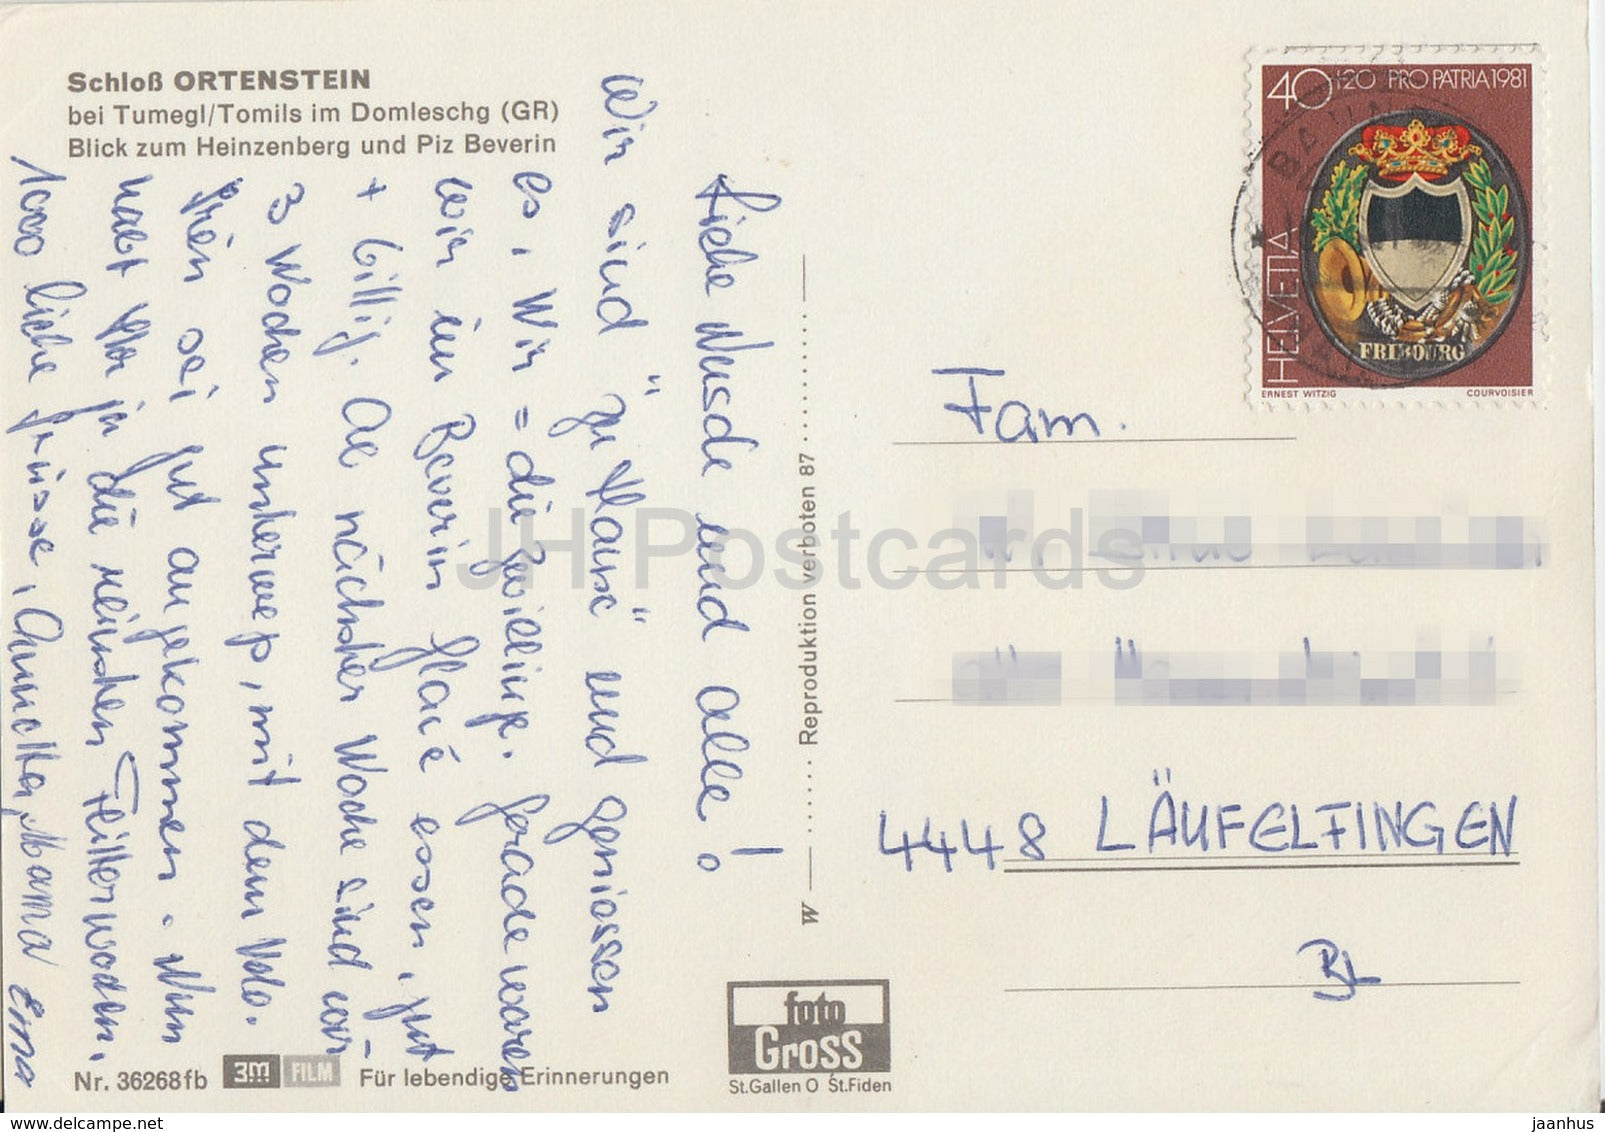 Schloß ORTENSTEIN
bei Tumegl/Tomils im Domleschg (GR)
Blick zum Heinzenberg und Piz Beverin
Liebe und alle!
Wir sind "zu Hause" und geniessen
es. Wir = die Zwillinge. Gerade waren
wir im Beverin Glacé essen, gut
+ billig. Ab nächster Woche sind wir
3 Wochen unterwegs, mit dem Velo.
sei gut angekommen. Nun
habt Ihr ja die reinsten Flitterwochen.
1000 liebe Grüsse, Annetta, Mama Erna
Nr. 36268fb
3M FILM
Für lebendige Erinnerungen
W
Reproduktion verboten 87
foto
Gross
St.Gallen O St.Fiden
40+20 PRO PATRIA 1981
HELVETIA
FRIBOURG
ERNEST WITZIG
COURVOISIER
Fam.
4448 LÄUFELFINGEN
BL
JH Postcards
www.delcampe.net
jaanhus